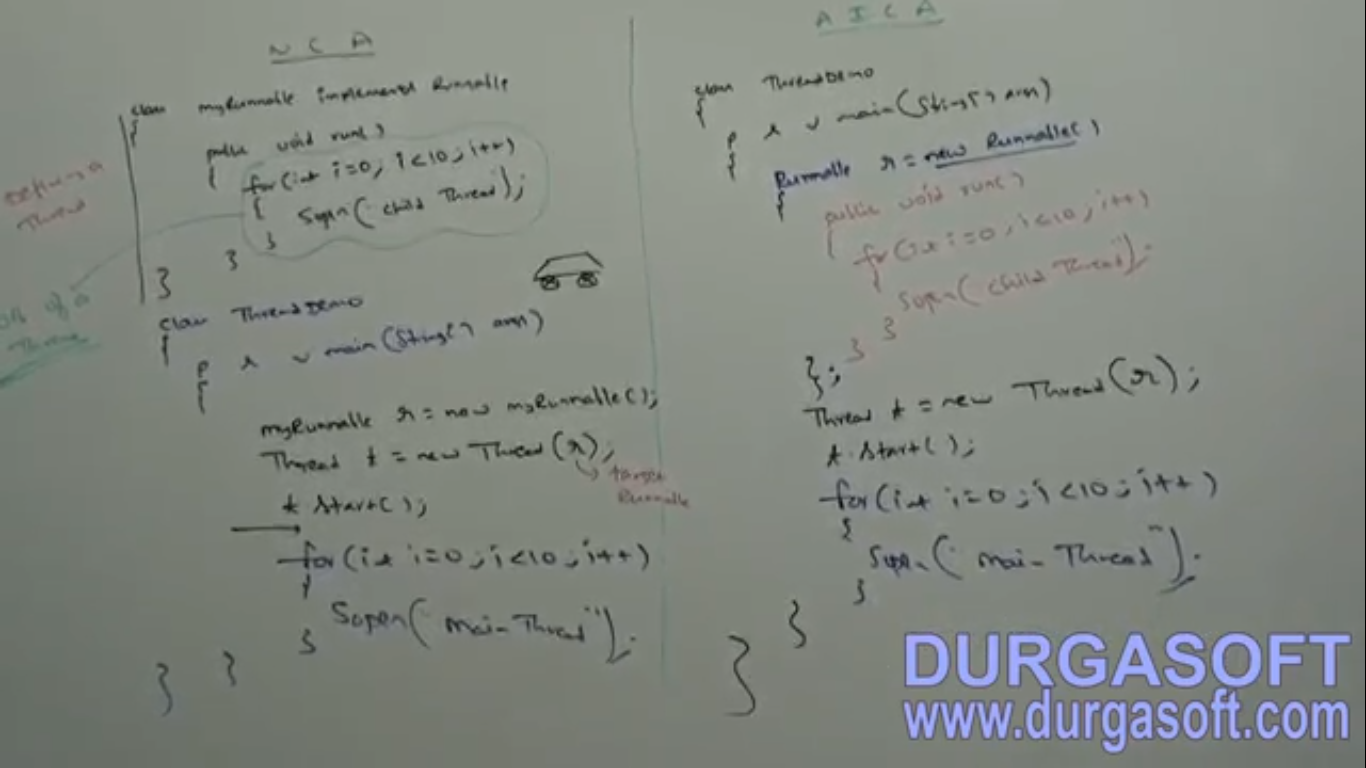 N C A
class myRunnable implements Runnable
{
public void run()
{
for(int i=0; i<10; i++)
{
Sopln("child Thread");
}
}
}
Defining a
Thread
Job of a
Thread
class ThreadDemo
{
p s v main(String[] args)
{
myRunnable r = new myRunnable();
Thread t = new Thread(r);
target
Runnable
t.start();
for(int i=0; i<10; i++)
{
Sopln("main Thread");
}
}
}
A I C A
class ThreadDemo
{
p s v main(String[] args)
{
Runnable r = new Runnable()
{
public void run()
{
for(int i=0; i<10; i++)
{
Sopln("child Thread");
}
}
};
Thread t = new Thread(r);
t.start();
for(int i=0; i<10; i++)
{
Sopln("main Thread");
}
}
}
DURGASOFT
www.durgasoft.com